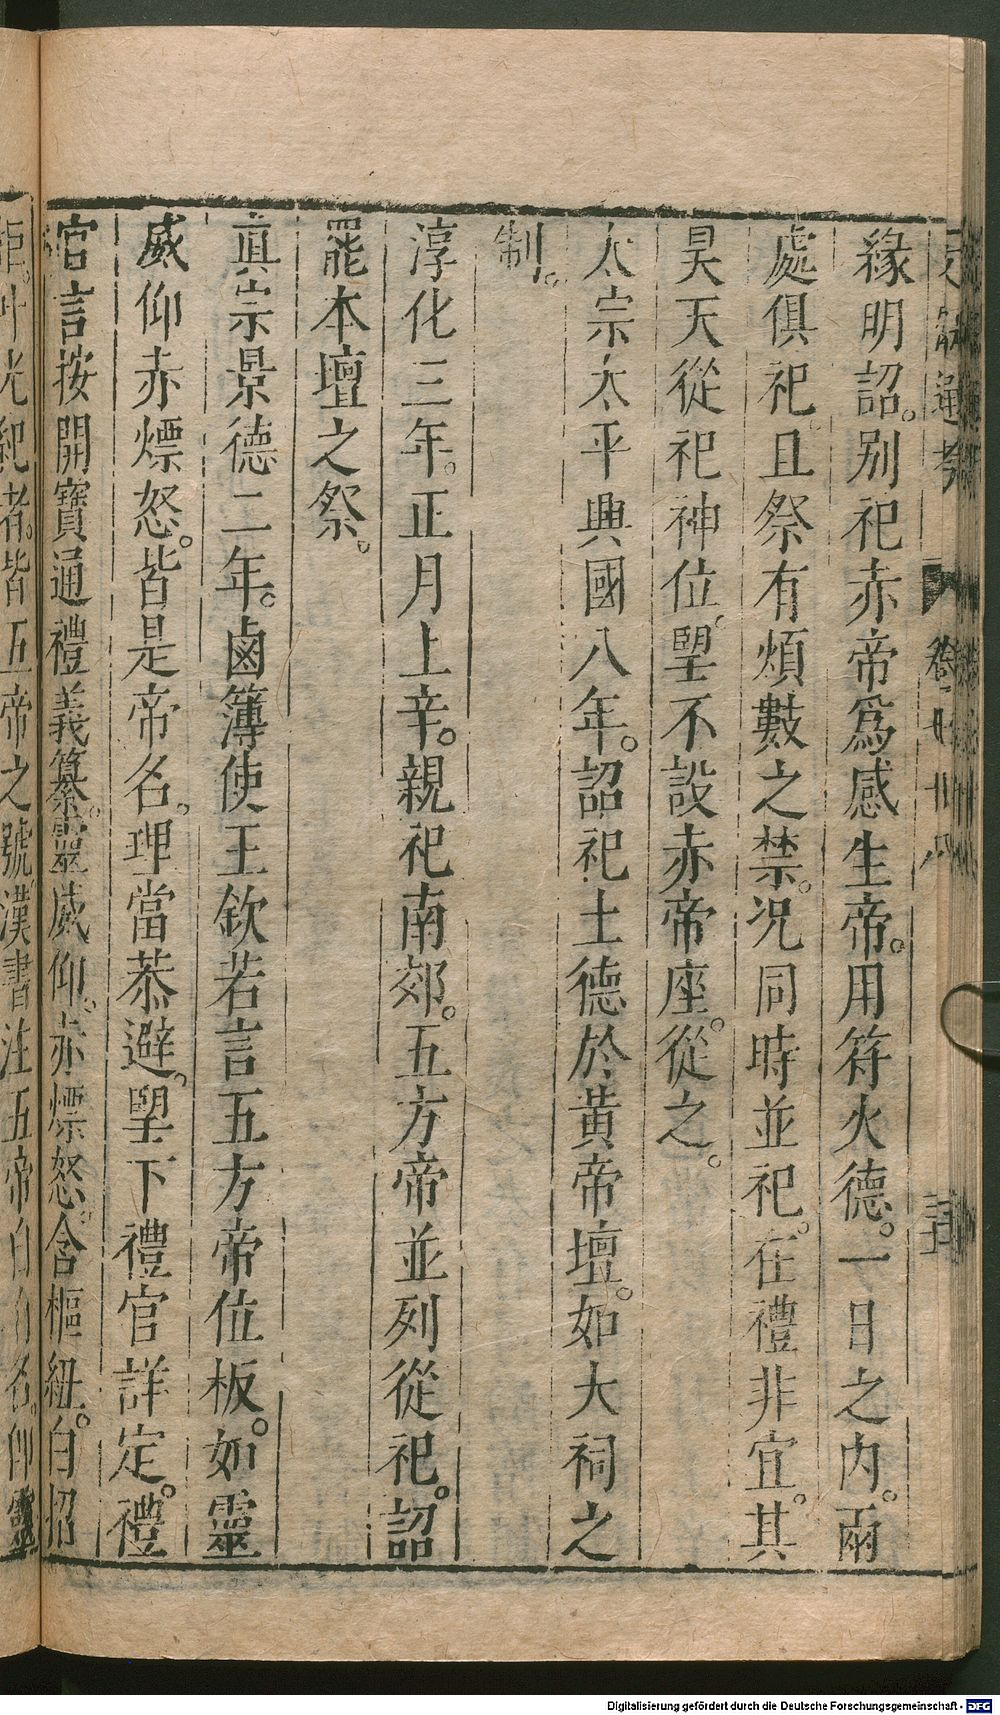 文獻通考 卷七十八
緣明詔。别祀赤帝爲感生帝。用符火德。一日之内。兩
處俱祀。且祭有煩數之禁。况同時並祀。在禮非宜。其
昊天從祀神位。望不設赤帝座。從之。
太宗太平興國八年。詔祀土德於黄帝壇。如大祠之
制。
淳化三年。正月上辛。親祀南郊。五方帝並列從祀。詔
罷本壇之祭。
真宗景德二年。鹵簿使王欽若言五方帝位板。如靈
威仰赤熛怒。皆是帝名。理當恭避。望下禮官詳定。禮
官言按開寶通禮義纂。靈威仰。赤熛怒。含樞紐。白招
拒。叶光紀者。皆五帝之號。漢書注五帝自有名。即靈
Digitalisierung gefördert durch die Deutsche Forschungsgemeinschaft - DFG